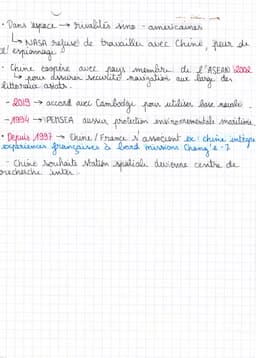 • Dans espace → rivalités sino-américaines
↳ NASA refuse de travailler avec Chine, peur de
l'espionnage.
• Chine coopère avec pays membre de l'ASEAN 2002
↳ pour assurer sécurité navigation aux large des
littoraux asiat.
- 2019 → accord avec Cambodge pour utiliser base navale.
- 1994 → PEMSEA assure protection environnementale maritime.
• Depuis 1997 → Chine / France s'associent ex : chine intègre
expériences françaises à bord missions Chang'e-
- Chine souhaite station spatiale devienne centre de
recherche inter.